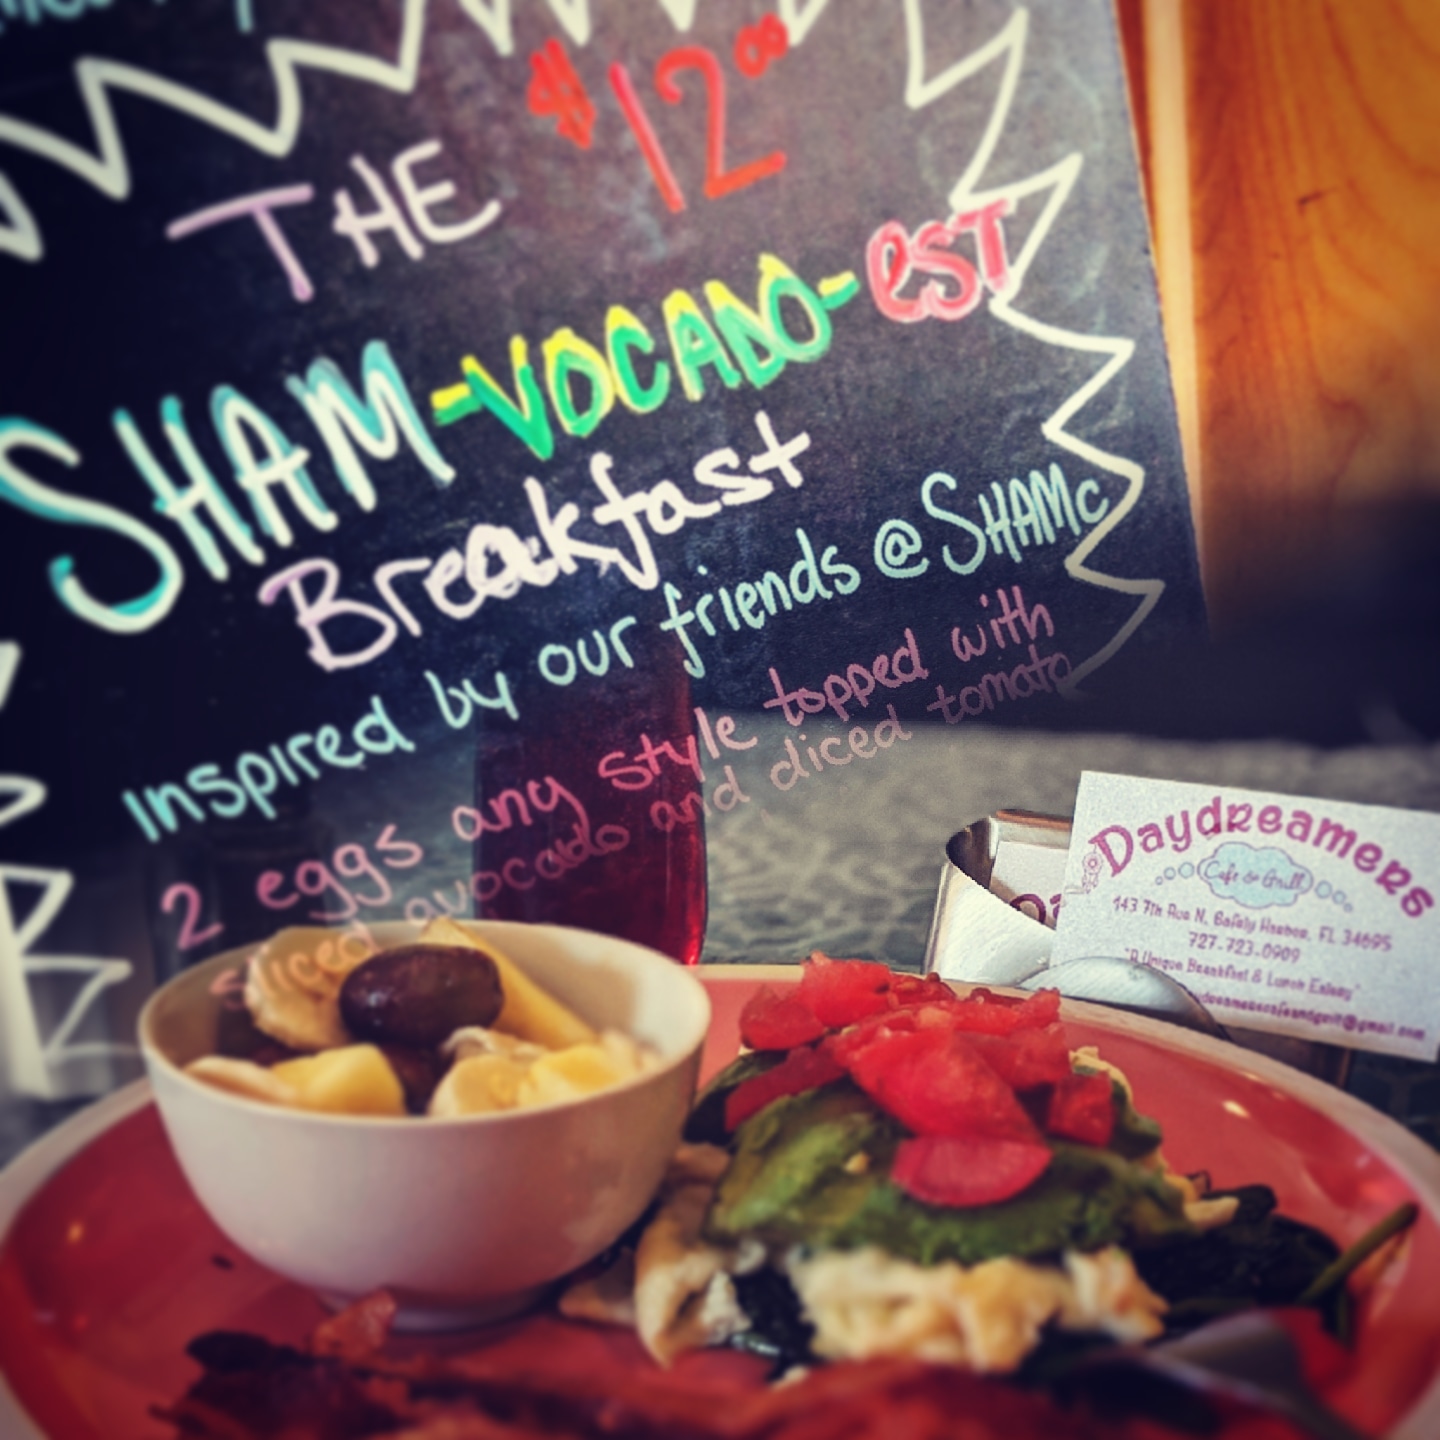 $12.00
THE
SHAM-VOCADO-EST
Breakfast
Inspired by our friends @SHAMc
2 eggs any style topped with
sliced avocado and diced tomato
Daydreamers
Cafe & Grill
143 7th Ave N, Safety Harbor, FL 34695
727.723.0909
"A Unique Breakfast & Lunch Eatery"